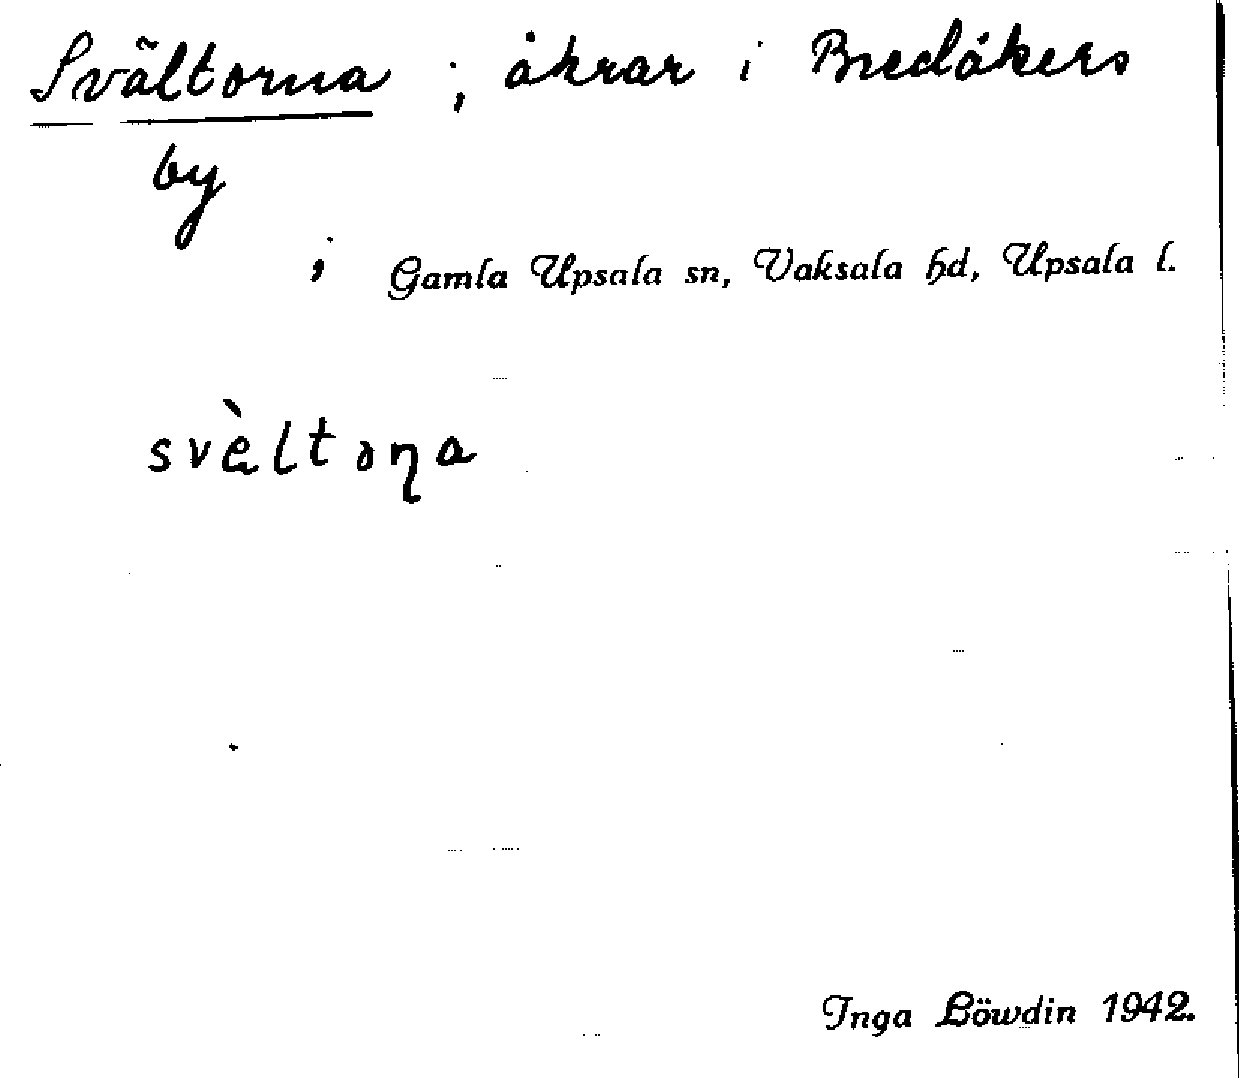 Svältorna ; åkrar i Bredåkers
by
; Gamla Upsala sn, Vaksala hd, Upsala l.
svὲltoɳa
Inga Löwdin 1942.